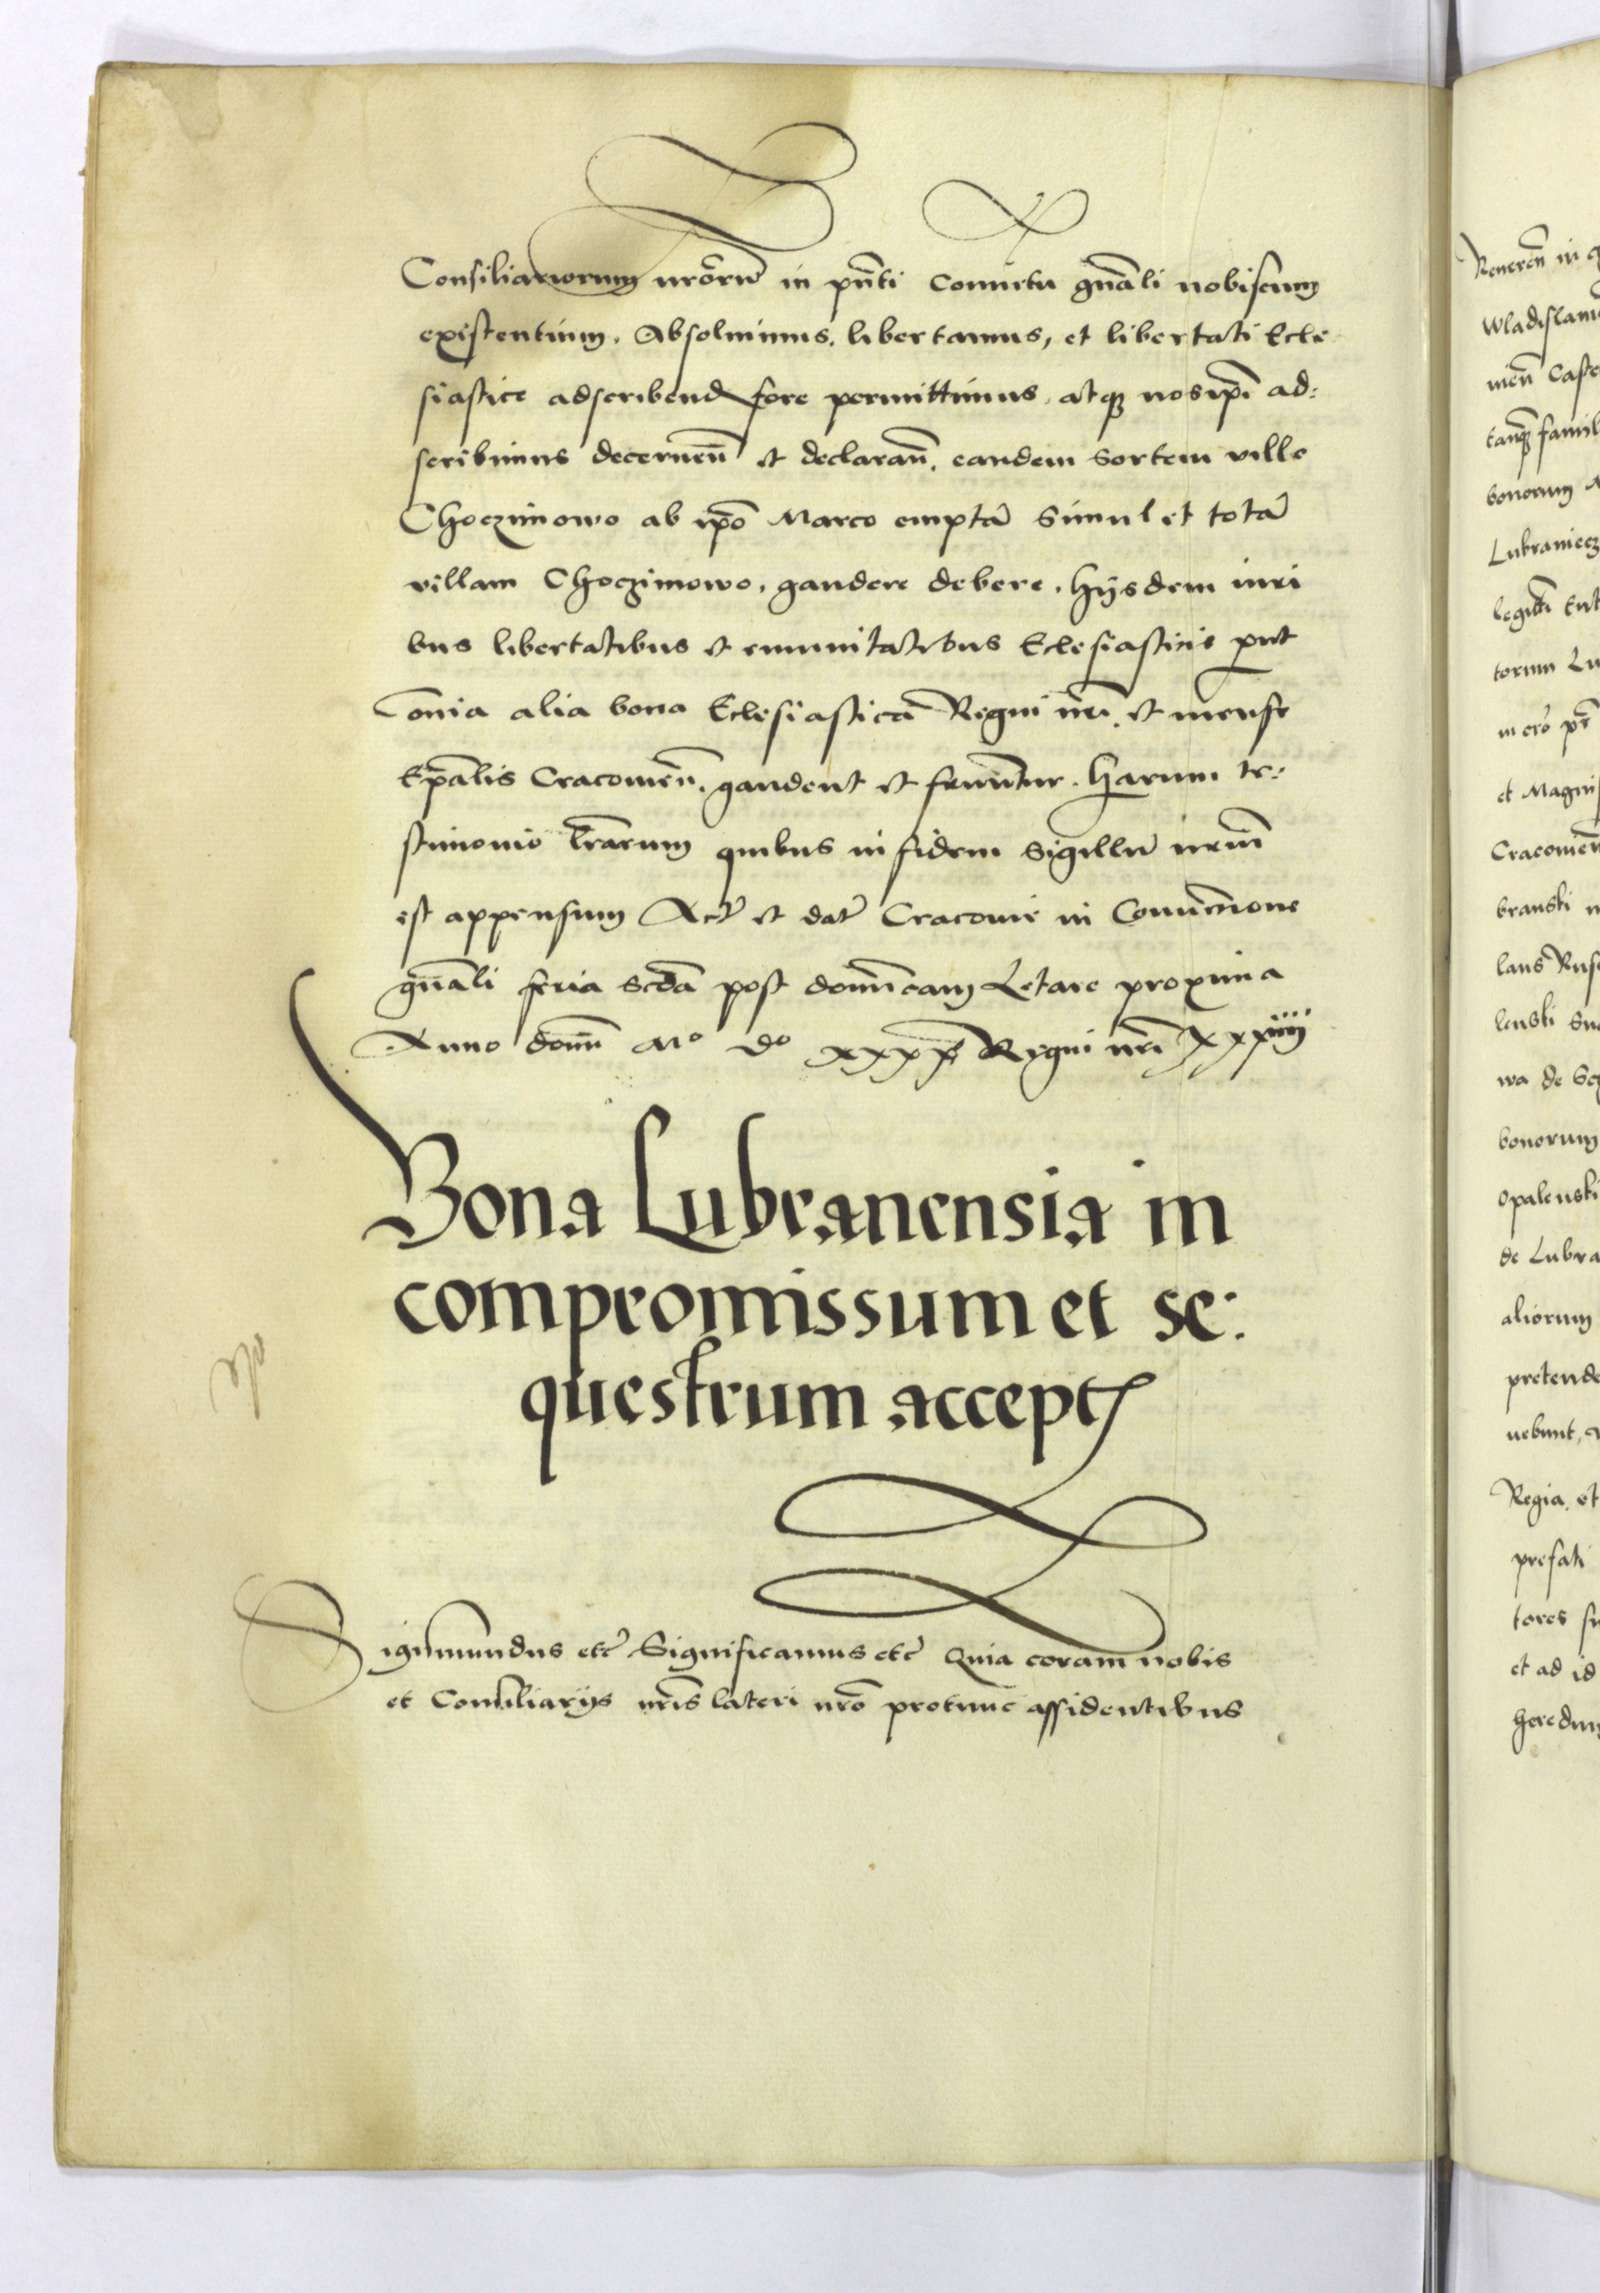 Consiliariorum nrõrũ in pñti Conuẽtu gñali nobiscum
existentium. Absoluimus, libertamus, et libertati Ecle
siastice adscribend fore permittimus, atq nosip̃i ad:
scribimus decerneñ et declarañ, eandem Sortem ville
Choczimowo ab ip̃o Marco emptã Simul et totã
villam Choczimowo, gaudere debere, hÿsdem iuri
bus libertatibus et emunitatibus Eclesiasticis put
om̃ia alia bona Eclesiastica Regni nr̃i et mense
Ep̃alis Cracouieñ, gaudent et fruuntur. Harum te:
stimonio lr̃arum quibus in fidem Sigillũ nr̃um
est appensum Act̃ et dat̃ Cracouie in Conuẽtione
gñali feria scd̃a post dominicam Letare proxima
Anno domĩ Mº dº xxxx Regni nr̃i xxxiiii
Bona Lubranensia in
compromissum et se:
questrum accept
Sigismundus etc̃ Significamus etc̃ Quia coram nobis
et Consiliarÿs nr̃is lateri nr̃o protunc assidentibus
Reueren in
Wladislaui
meñ Caste
tanq famil
bonorum
Lubraniecz
legitti
torum Lu
et Magnif
Cracouień
branski
lans Rus
lenski
wa de
bonorum
Opalenski
de Lubra
aliorum
pretende
uebunt,
Regia, et
prefati
tores
et ad id
heredum